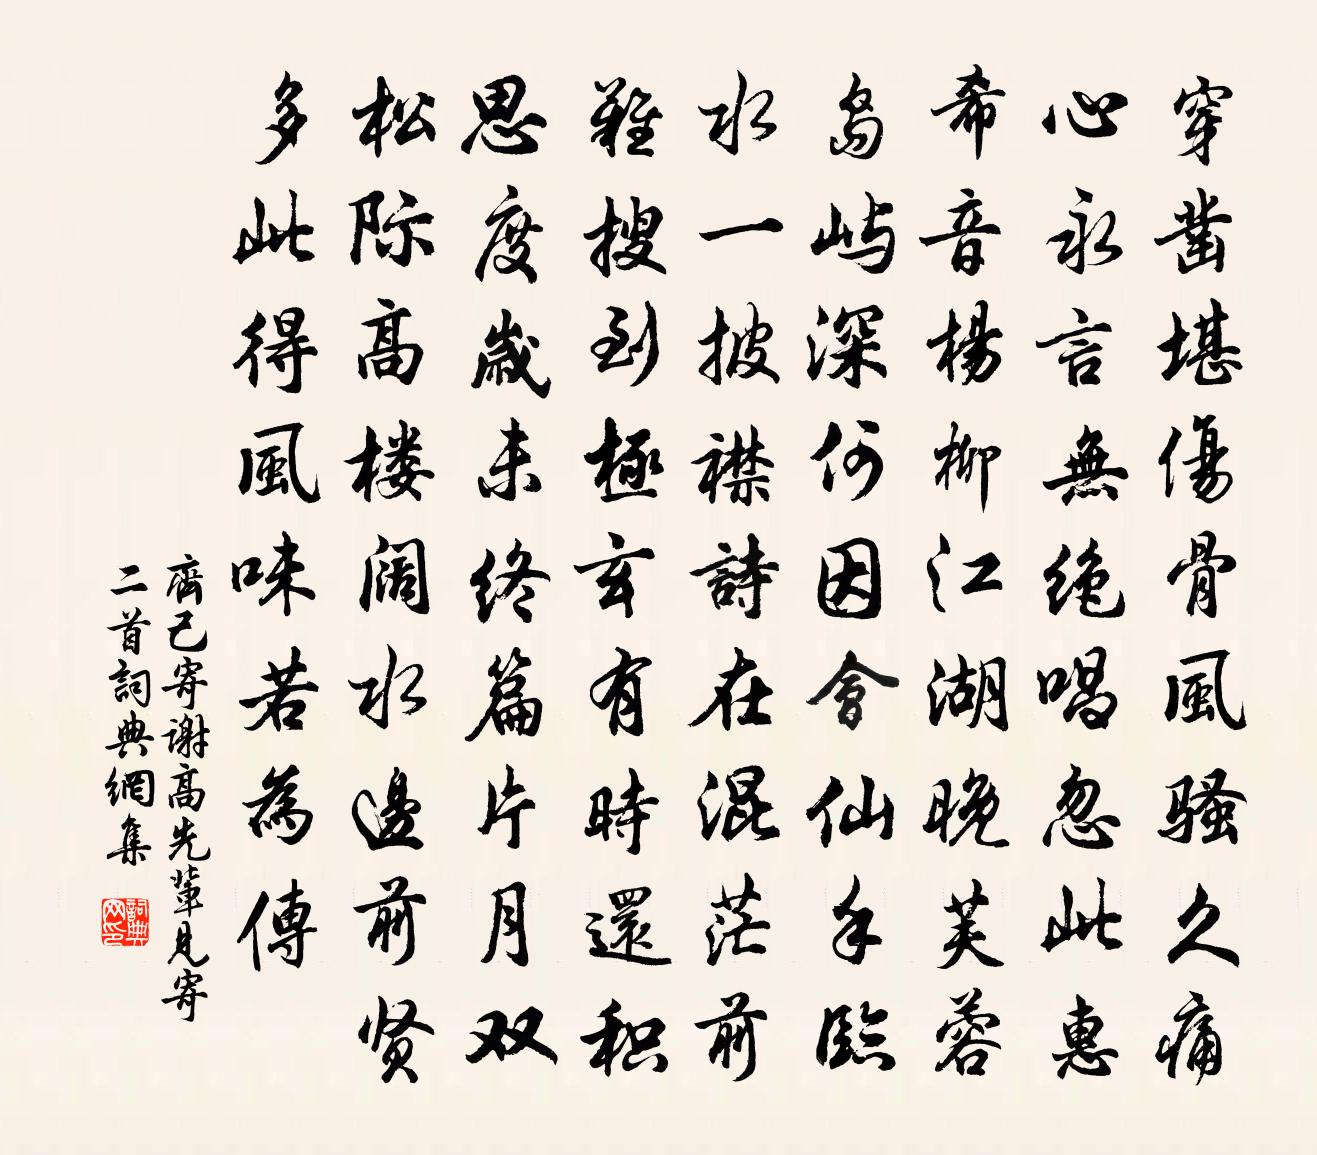 穿凿堪傷骨風骚久痛
心永言無绝唱忽此惠
希音楊柳江湖晚芙蓉
島屿深何因會仙手臨
水一披襟詩在混茫前
難搜到極玄有時還积
思度歲未终篇片月双
松际高楼阔水邊前贤
多此得風味若為傳
齊己寄謝高先輩見寄
二首詞典網集
詞典网印